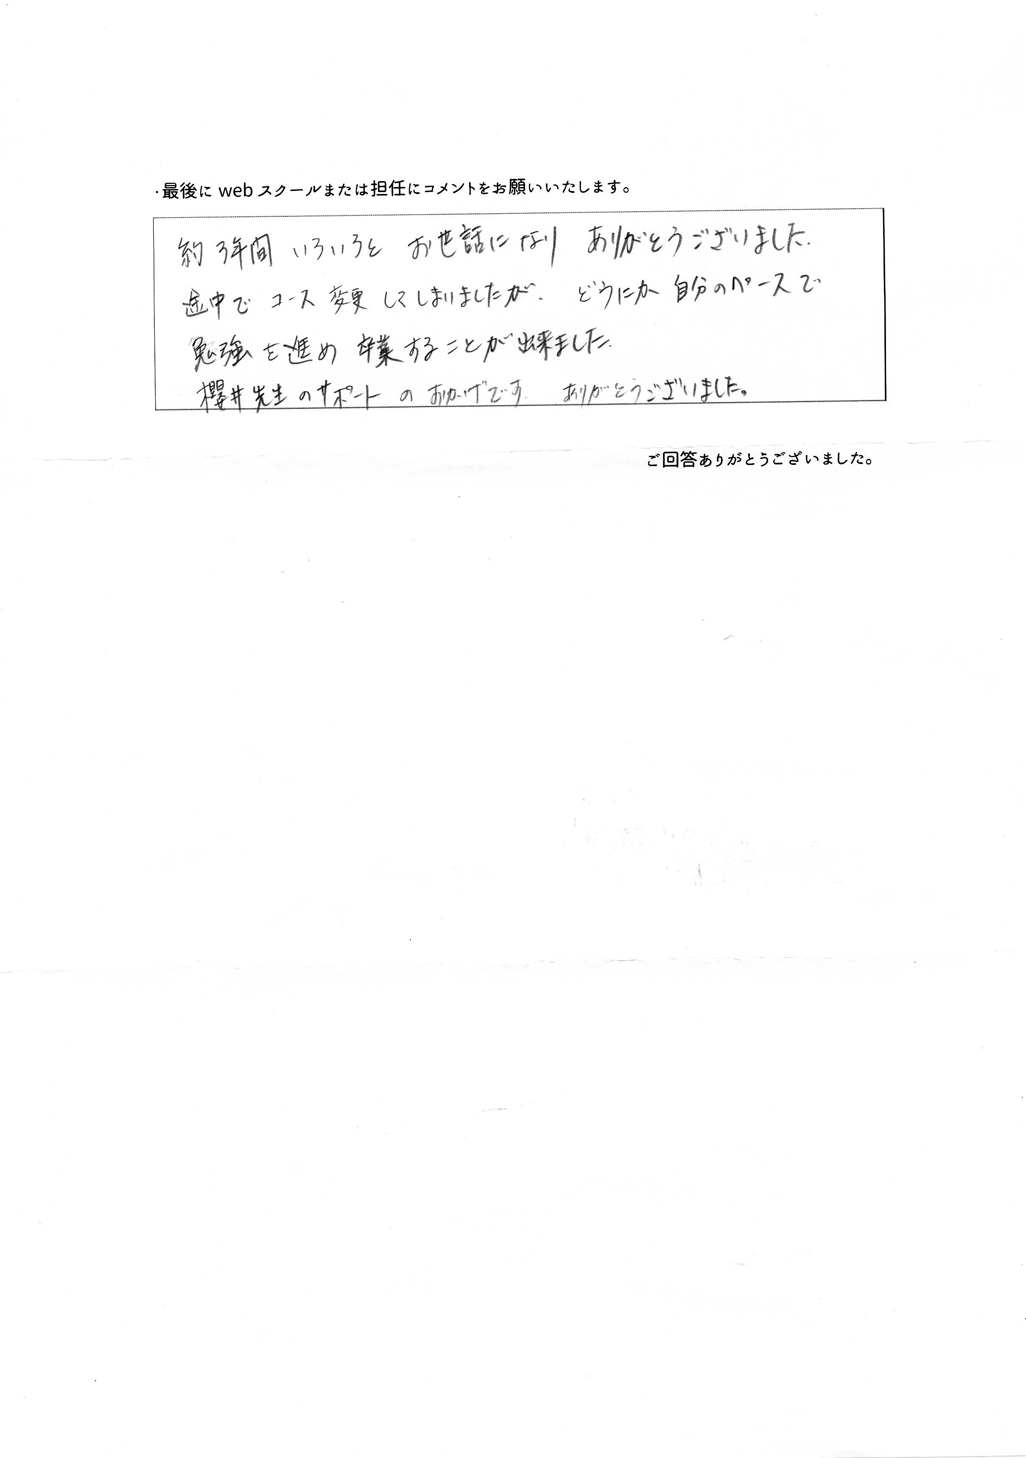 ・最後に web スクールまたは担任にコメントをお願いいたします。
約3年間 いろいろと お世話になり ありがとうございました.
途中で コース 変更 してしまいましたが、 どうにか 自分のペースで
勉強を進め 卒業することが出来ました.
櫻井先生のサポートのおかげです. ありがとうございました。
ご回答ありがとうございました。